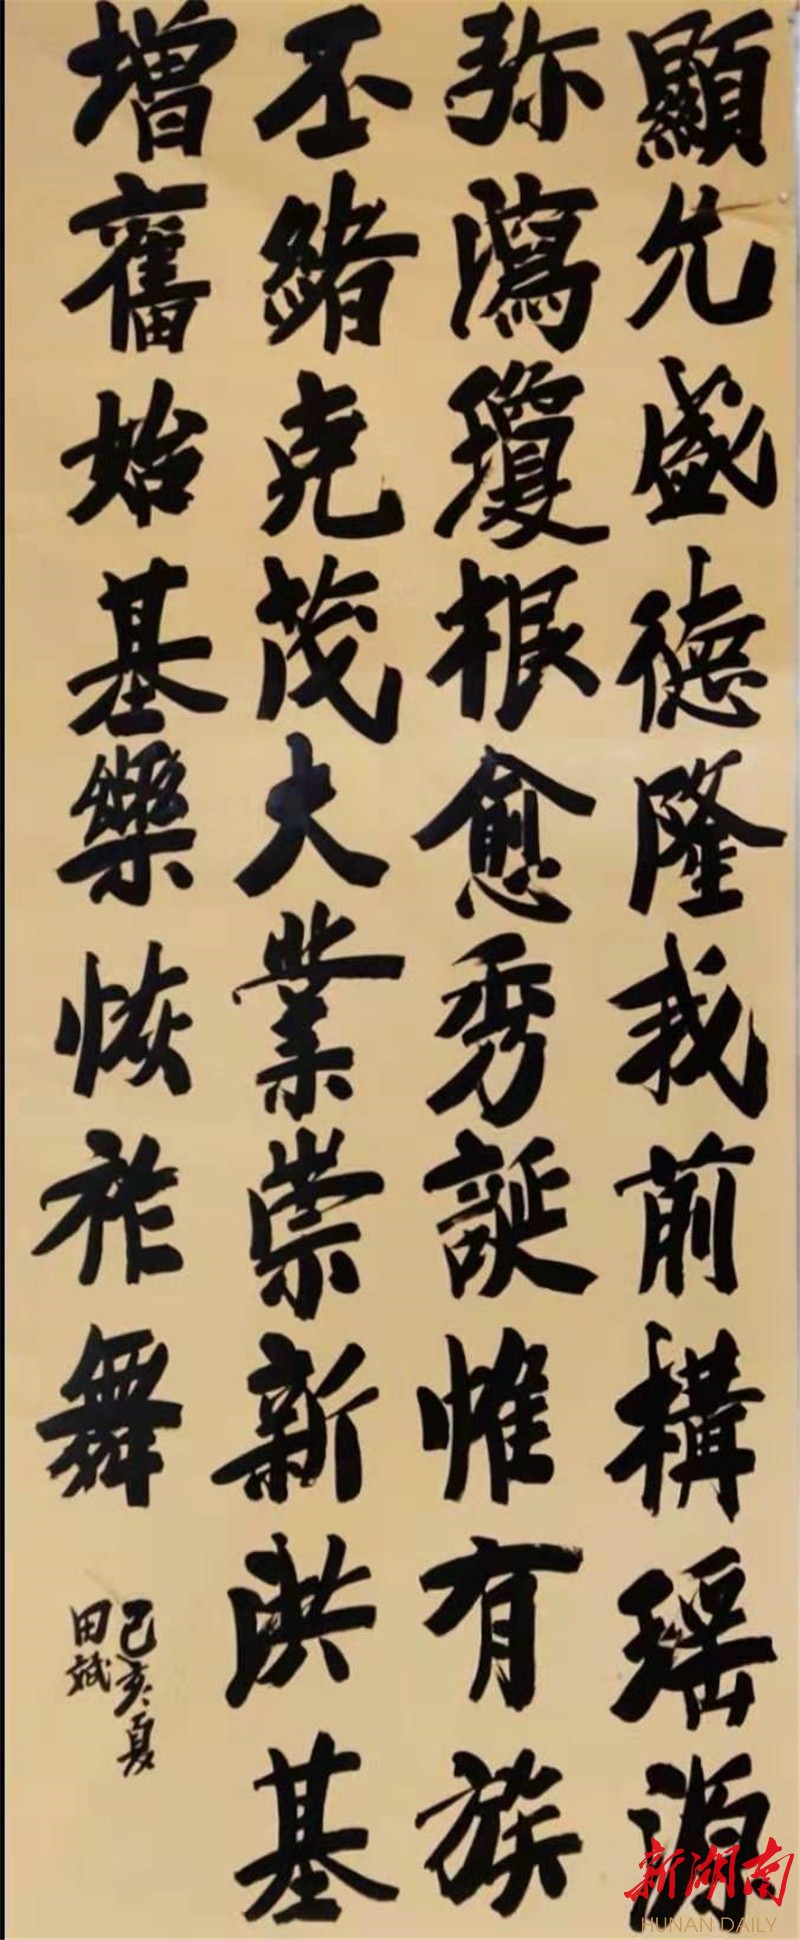 顯允盛德隆我前構瑶源
弥瀉瓊根愈秀誕惟有族
丕緒克茂大業崇新洪基
增舊始基樂恢祚舞
己亥夏
田斌
新湖南
HUNAN DAILY